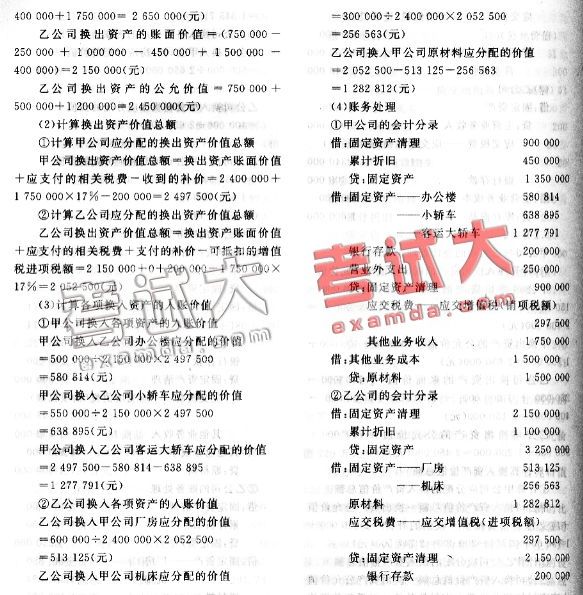 400 000+1 750 000= 2 650 000(元)
乙公司换出资产的账面价值=(750 000-
250 000 + 1 000 000 - 450 000 + 1 500 000 -
400 000)=2 150 000(元)
乙公司换出资产的公允价值=750 000+
500 000+1 200 000=2 450 000(元)
(2)计算换出资产价值总额
①计算甲公司应分配的换出资产价值总额
甲公司换出资产价值总额=换出资产账面价值
+应支付的相关税费-收到的补价=2 400 000+
1 750 000×17%-200 000=2 497 500(元)
②计算乙公司应分配的换出资产价值总额
乙公司换出资产价值总额=换出资产账面价值
+应支付的相关税费+支付的补价-可抵扣的增值
税进项税额=2 150 000+0+200 000-1 750 000×
17%=2 052 500(元)
(3)计算各项换入资产的入账价值
①甲公司换入各项资产的入账价值
甲公司换入乙公司办公楼应分配的价值
=500 000÷2 150 000×2 497 500
=580 814(元)
甲公司换入乙公司小轿车应分配的价值
=550 000÷2 150 000×2 497 500
=638 895(元)
甲公司换入乙公司客运大轿车应分配的价值
=2 497 500-580 814-638 895
=1 277 791(元)
②乙公司换入各项资产的入账价值
乙公司换入甲公司厂房应分配的价值
=600 000÷2 400 000×2 052 500
=513 125(元)
乙公司换入甲公司机床应分配的价值
=300 000÷2 400 000×2 052 500
=256 563(元)
乙公司换入甲公司原材料应分配的价值
=2 052 500-513 125-256 563
=1 282 812(元)
(4)账务处理
①甲公司的会计分录
借:固定资产清理 900 000
累计折旧 450 000
贷:固定资产 1 350 000
借:固定资产——办公楼 580 814
——小轿车 638 895
——客运大轿车 1 277 791
银行存款 200 000
营业外支出 250 000
贷:固定资产清理 900 000
应交税费——应交增值税(销项税额)
297 500
其他业务收入 1 750 000
借:其他业务成本 1 500 000
贷:原材料 1 500 000
②乙公司的会计分录
借:固定资产清理 2 150 000
累计折旧 1 100 000
贷:固定资产 3 250 000
借:固定资产——厂房 513 125
——机床 256 563
原材料 1 282 812
应交税费——应交增值税(进项税额)
297 500
贷:固定资产清理 2 150 000
银行存款 200 000
考试大
examda.com
考试大
examda.com